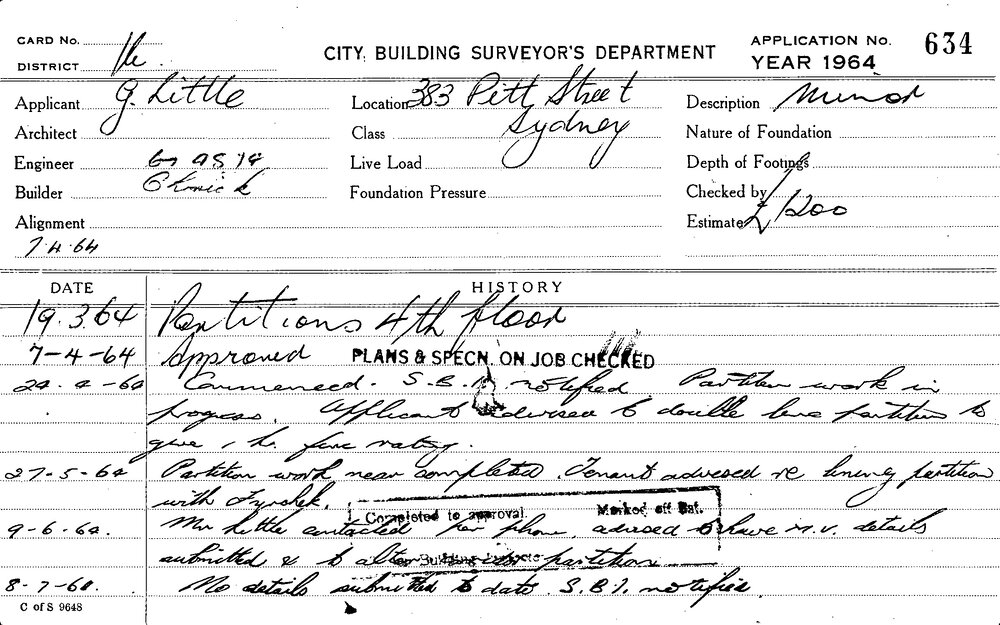 CARD No.
DISTRICT
CITY BUILDING SURVEYOR'S DEPARTMENT
APPLICATION No. 634
YEAR 1964
Applicant G. Little
Location 383 Pitt Street
Sydney
Description Minor
Architect
Class
Nature of Foundation
Engineer
Live Load
Depth of Footings
Builder
Foundation Pressure
Checked by
Alignment
Estimate £1200
7.4.64
DATE HISTORY
19.3.64 Partitions 4th floor
7-4-64 Approved PLANS & SPECN. ON JOB CHECKED
Commenced. S.B.I. notified Partition work in
progress. Applicant advised to double line partition to
give 1 hr. fire rating.
27-5-64 Partition work near completed. Tenant advised re lining partition
with
Completed to approval. Marked off Bat.
9-6-64. Mr Little contacted per phone, advised to have M.V. details
submitted & to alter partition
8-7-64. No details submitted to date. S.B.I. notified.
C of S 9648